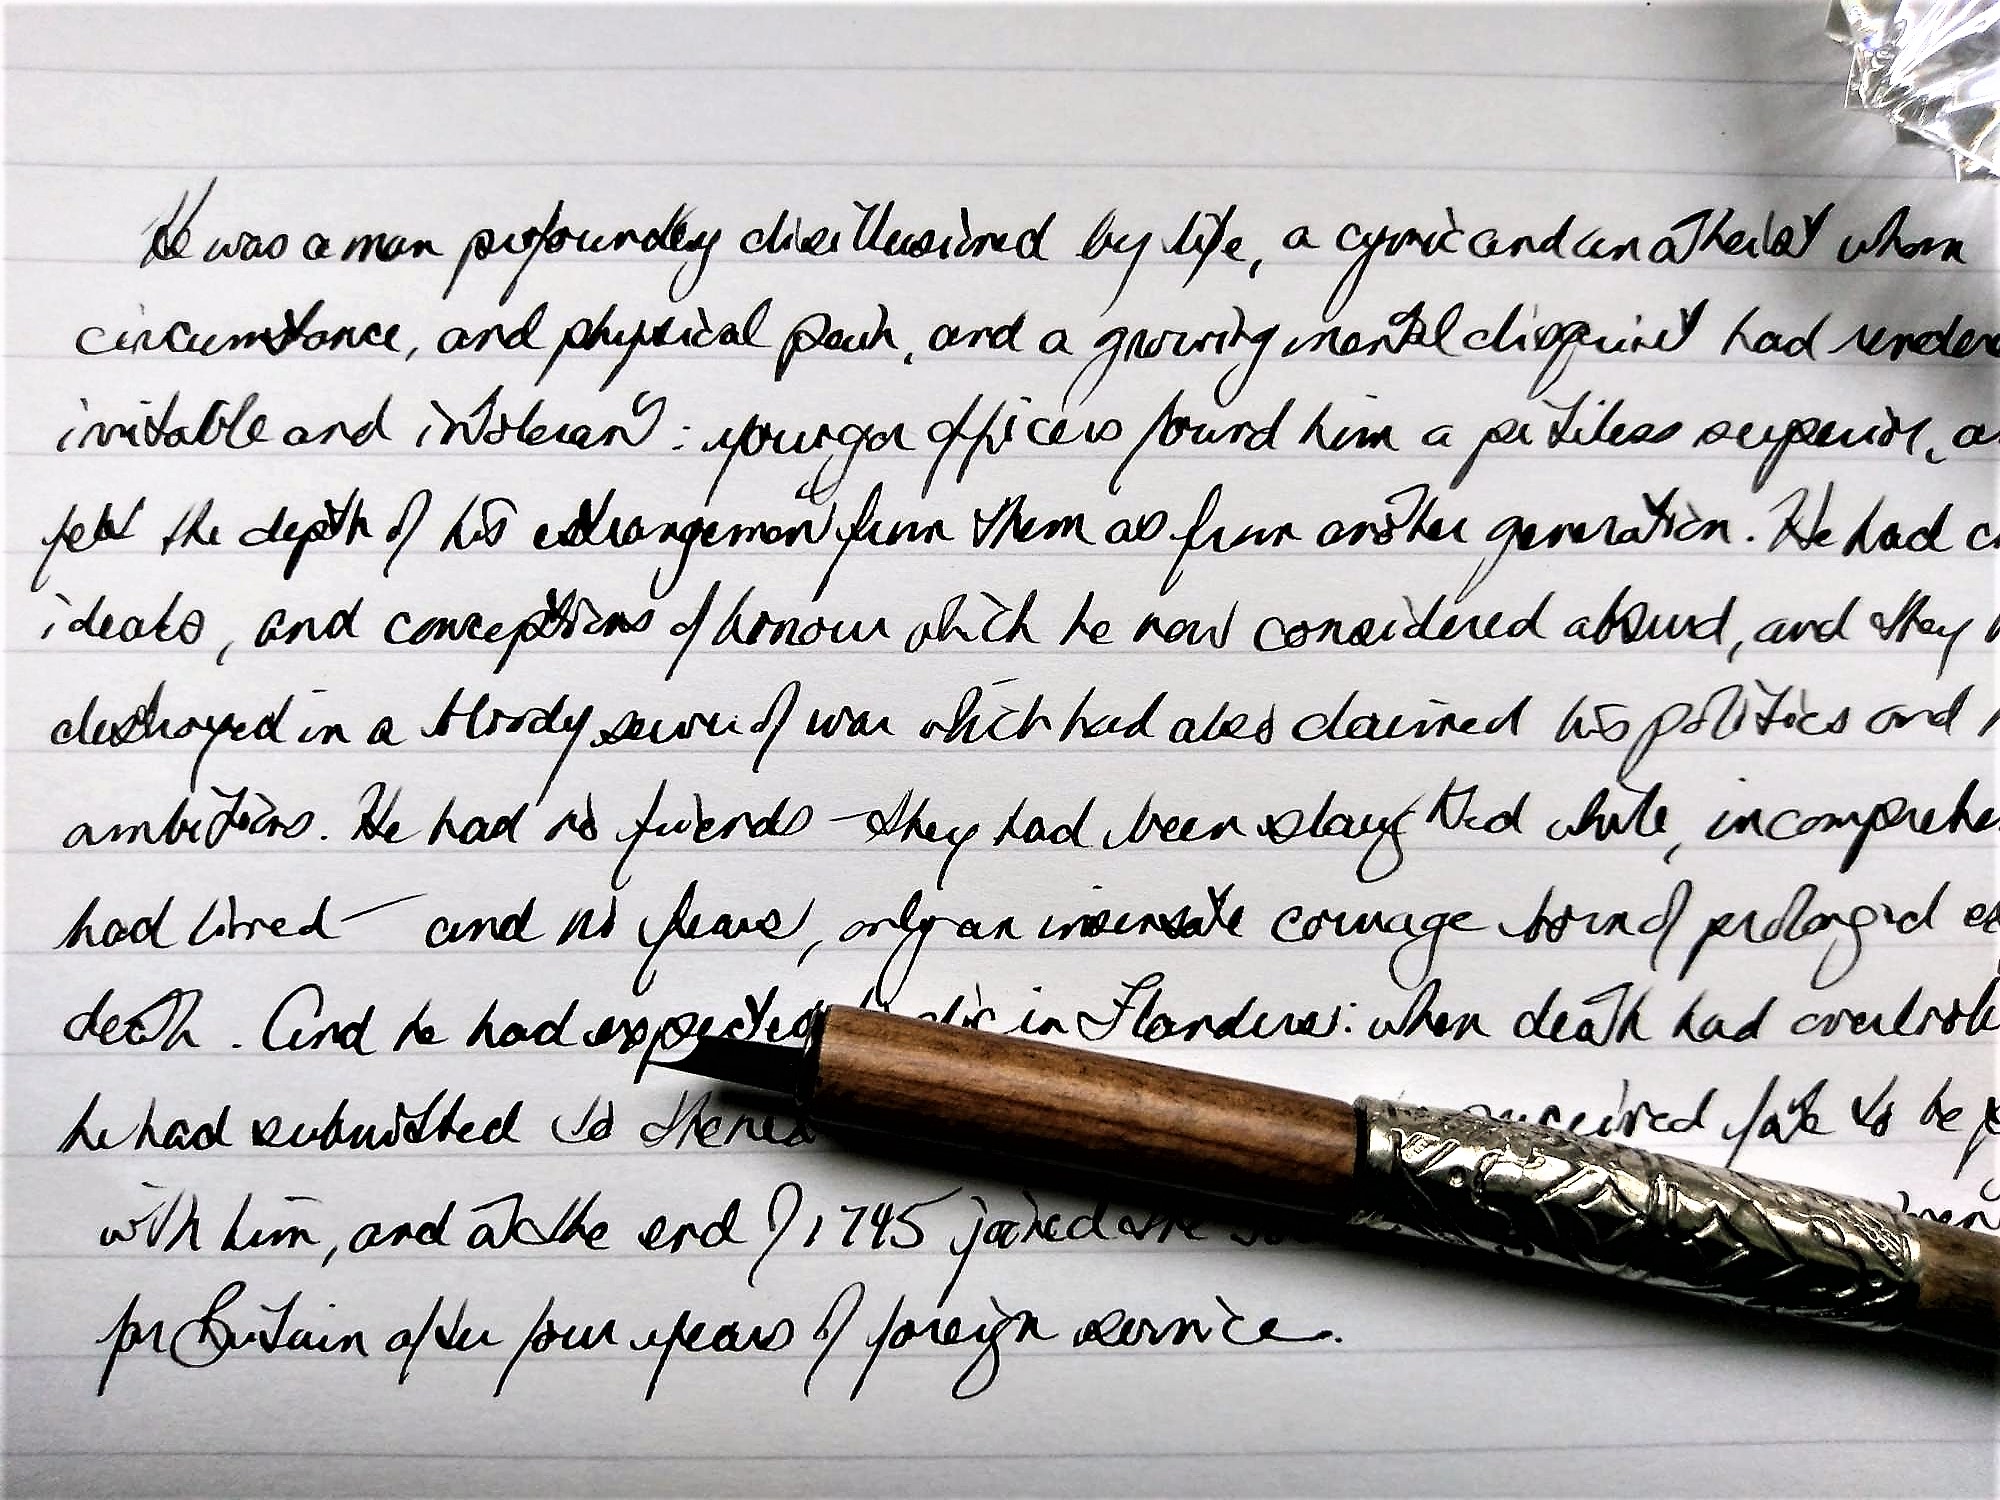 He was a man profoundly disillusioned by life, a cynic and an atheist whom
circumstance, and physical pain, and a growing mental disquiet had rendere
irritable and intolerant: younger officers found him a pitiless superior, a
felt the depth of his estrangement from them as from another generation. He had c
ideals, and conceptions of honour which he now considered absurd, and they
destroyed in a bloody sewer of war which had also claimed his politics and
ambitions. He had no friends - they had been slaughtered while, incomprehe
had lived - and no fears, only an insensate courage born of prolonged
death. And he had expected to die in Flanders: when death had overlook
he had submitted to the perceived fate to be
with him, and at the end of 1745 joined the
for Britain after four years of foreign service.